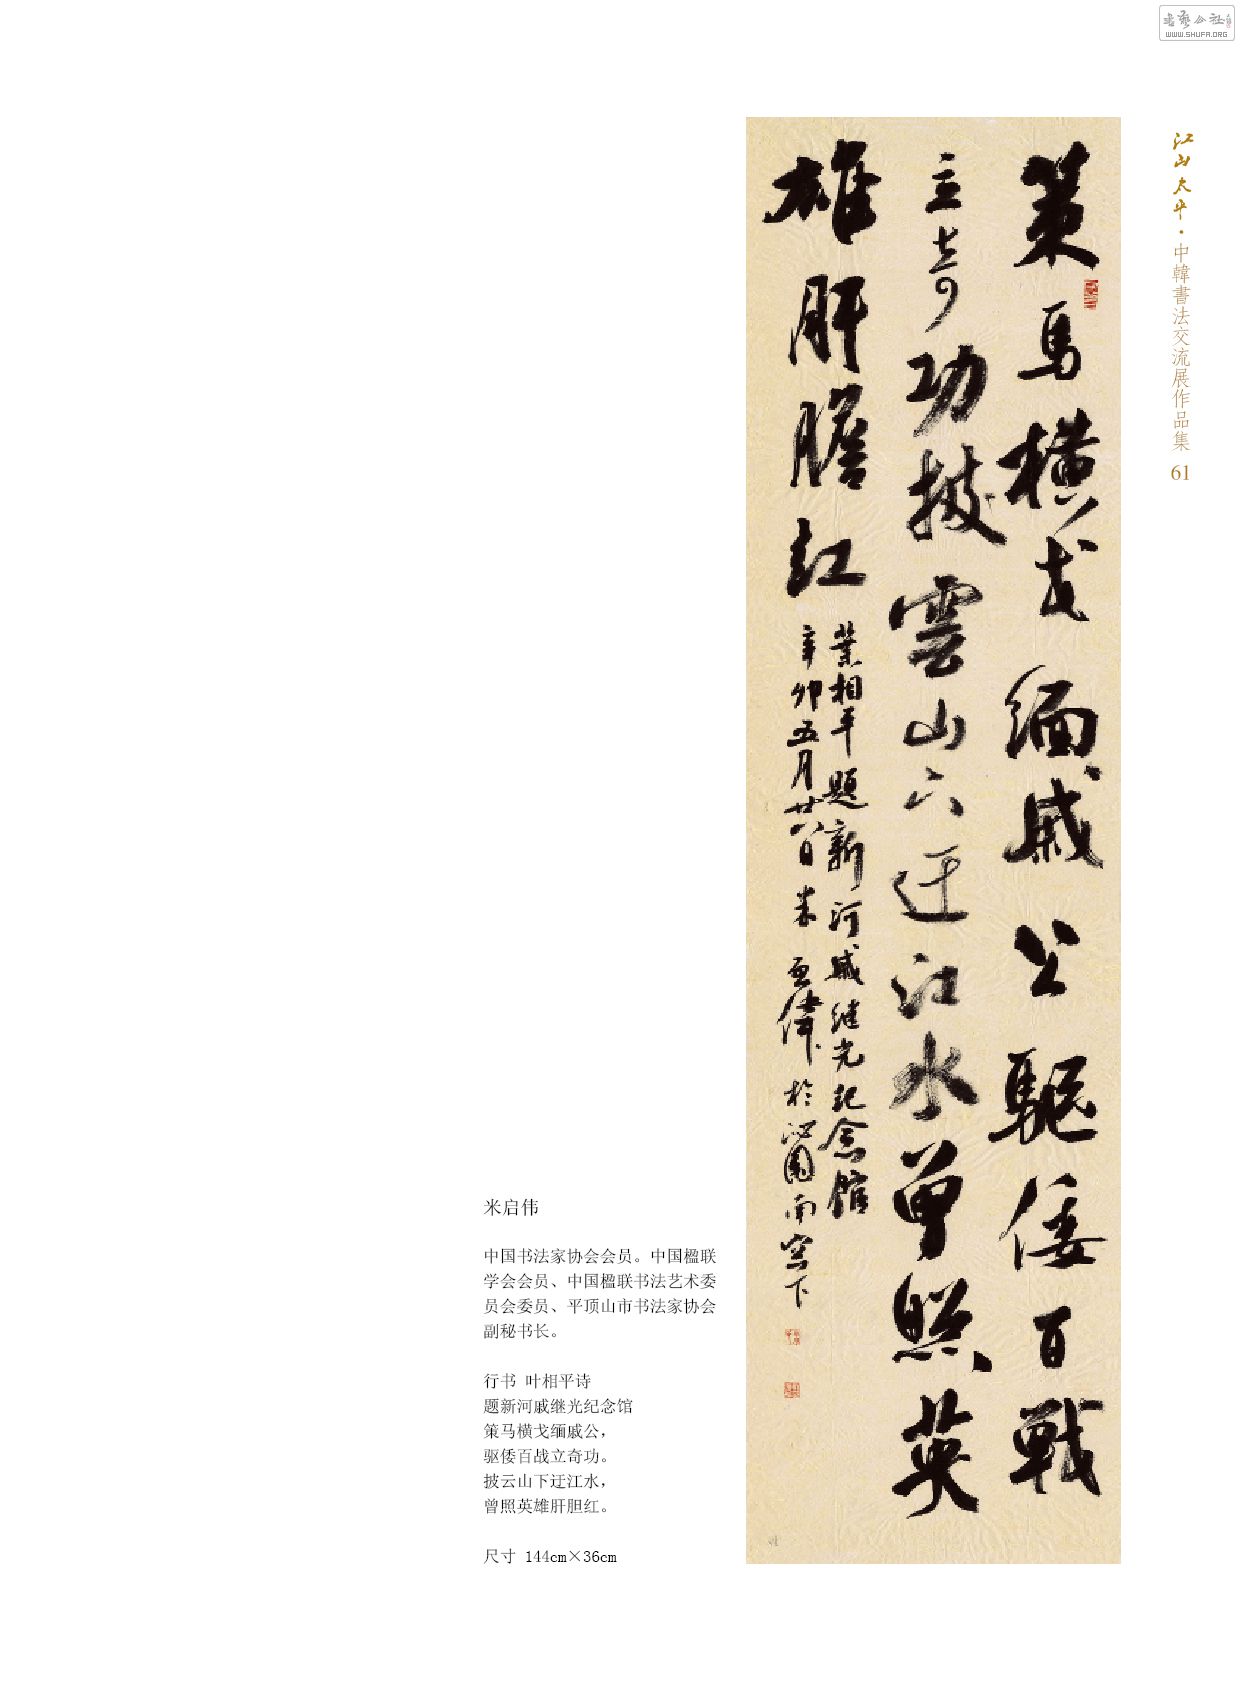 書艺公社
WWW.SHUFA.ORG
江山太平·中韓書法交流展作品集 61
策馬横戈緬戚公驅倭百戰
立奇功披雲山下迂江水曾照英
雄肝膽紅
葉相平題新河戚继光記念館
辛卯五月廿八日米啓偉於沁園南窓下
米启伟
中国书法家协会会员。中国楹联
学会会员、中国楹联书法艺术委
员会委员、平顶山市书法家协会
副秘书长。
行书 叶相平诗
题新河戚继光纪念馆
策马横戈缅戚公，
驱倭百战立奇功。
披云山下迂江水，
曾照英雄肝胆红。
尺寸 144cm×36cm